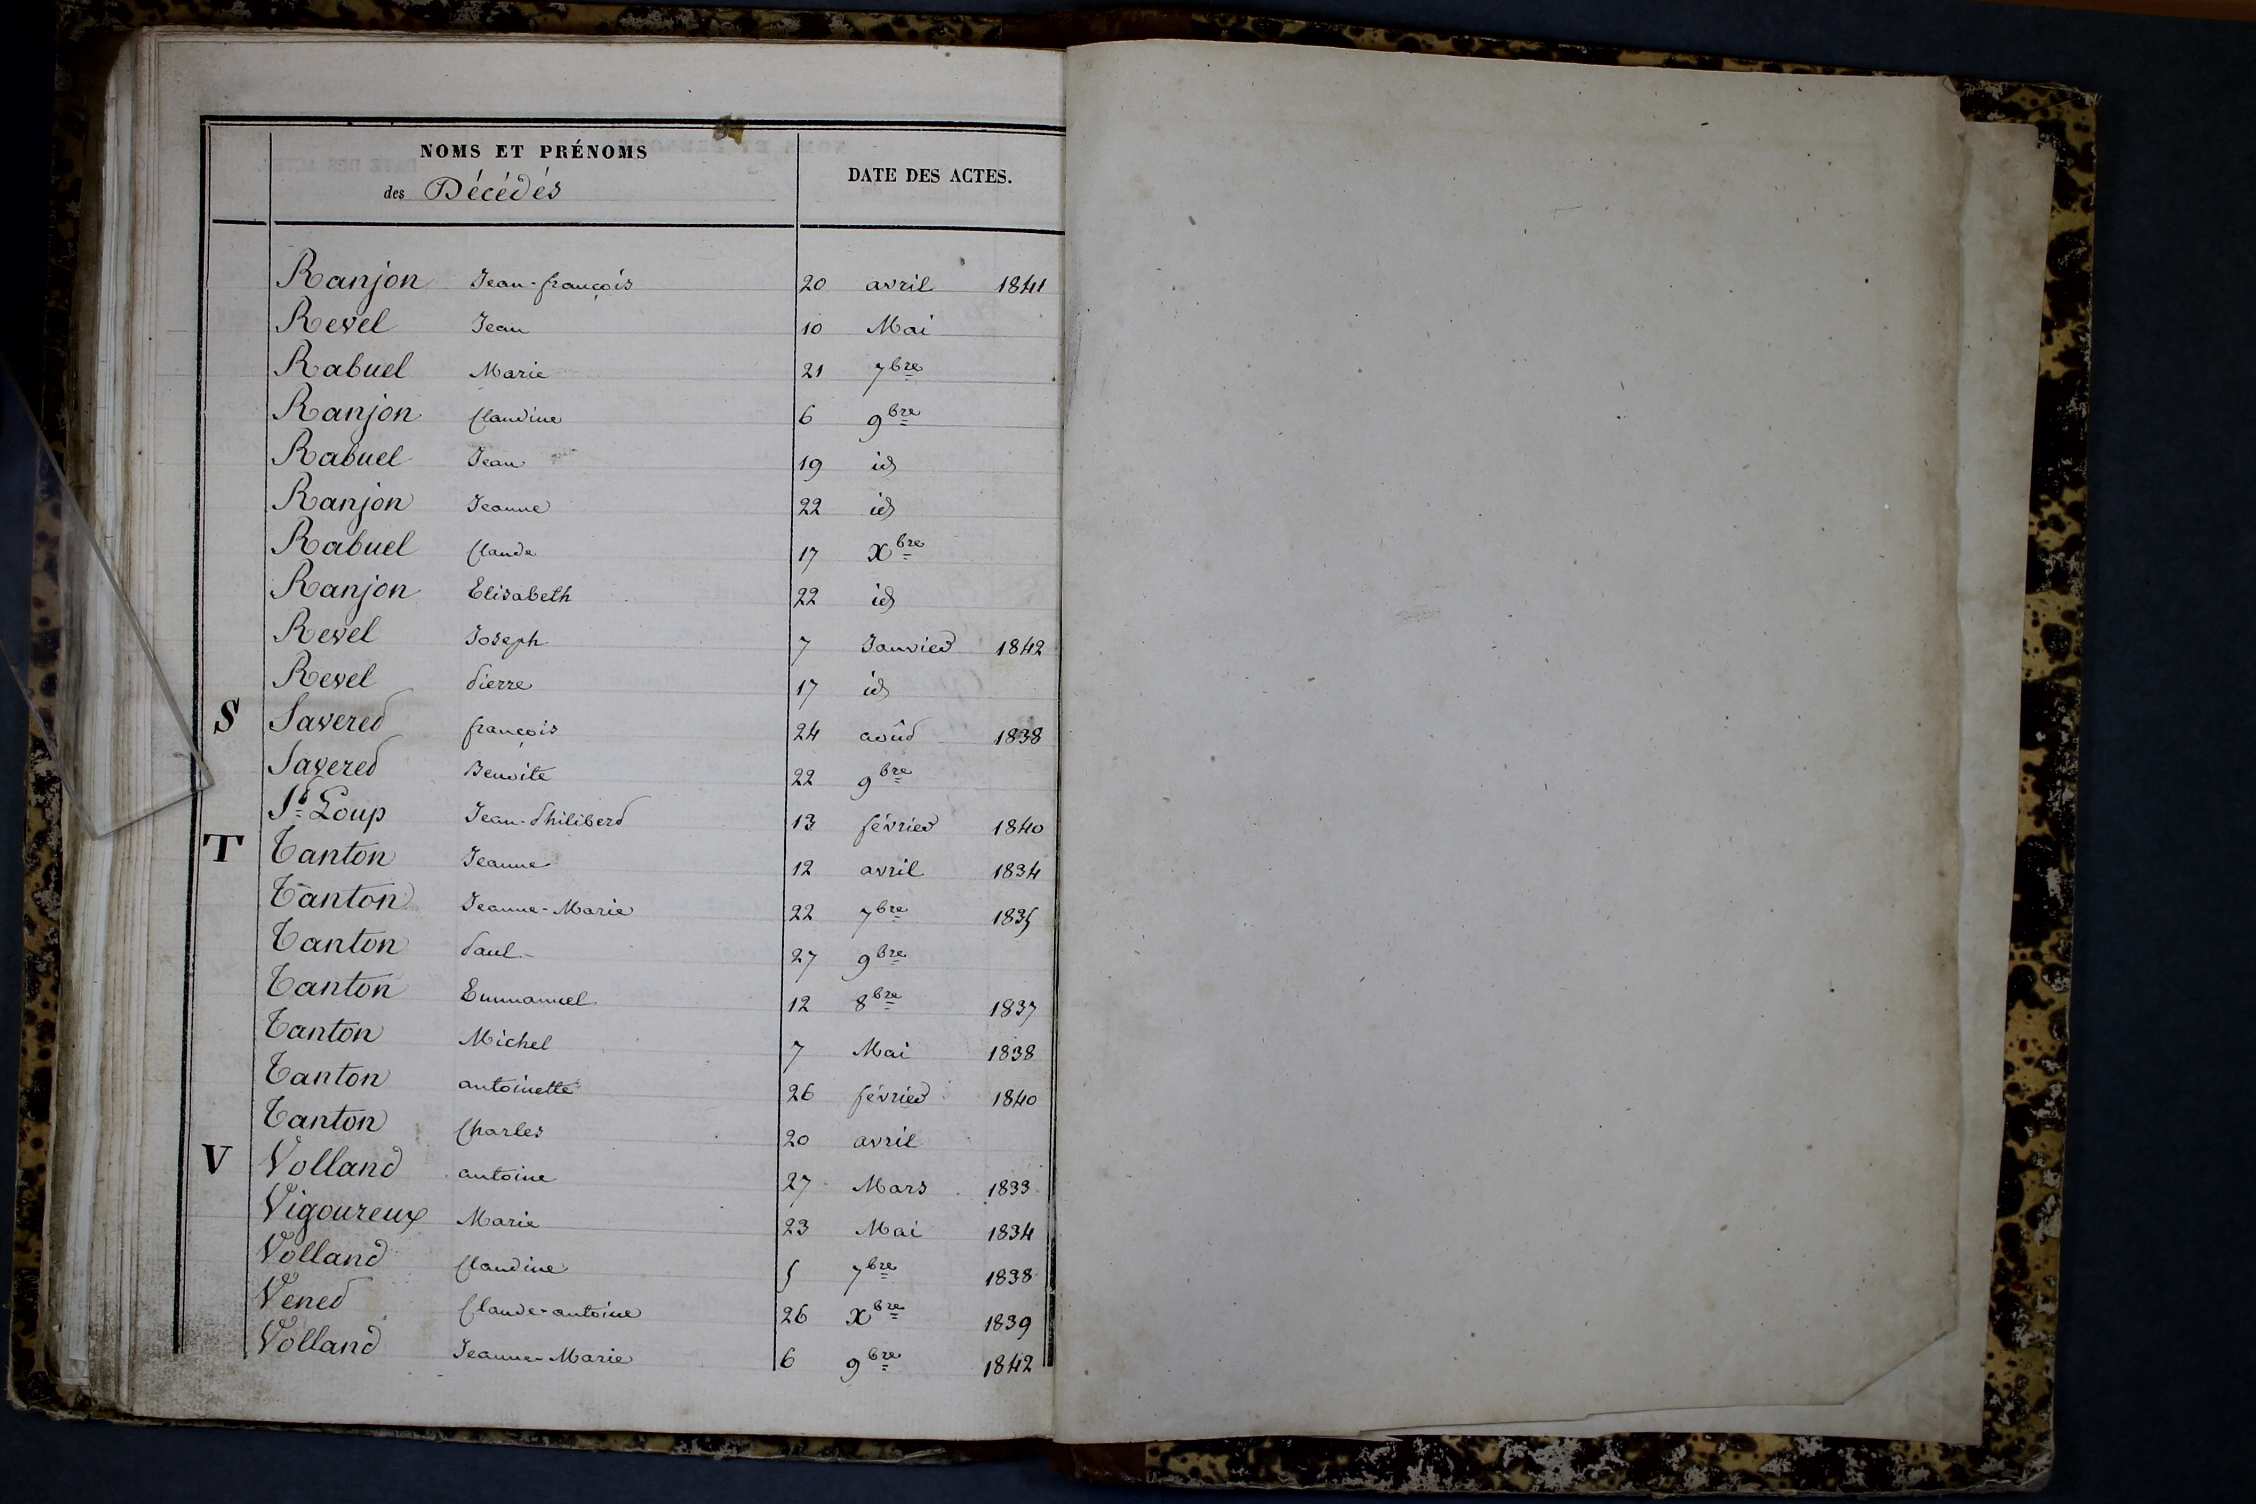 NOMS ET PRÉNOMS
des Décédés
DATE DES ACTES.
Ranjon Jean-françois 20 avril 1841
Revel Jean 10 Mai
Rabuel Marie 21 7bre
Ranjon Claudine 6 9bre
Rabuel Jean 19 id
Ranjon Jeanne 22 id
Rabuel Claude 17 Xbre
Ranjon Elisabeth 22 id
Revel Joseph 7 Janvier 1842
Revel Pierre 17 id
S Saveret françois 24 août 1838
Saveret Benoite 22 9bre
St Loup Jean-Philibert 13 février 1840
T Tanton Jeanne 12 avril 1834
Tanton Jeanne-Marie 22 7bre 1835
Tanton Paul 27 9bre
Tanton Emmanuel 12 8bre 1837
Tanton Michel 7 Mai 1838
Tanton antoinette 26 février 1840
Tanton Charles 20 avril
V Volland antoine 27 Mars 1833
Vigoureux Marie 23 Mai 1834
Volland Claudine 5 7bre 1838
Venet Claude-antoine 26 Xbre 1839
Volland Jeanne-Marie 6 9bre 1842